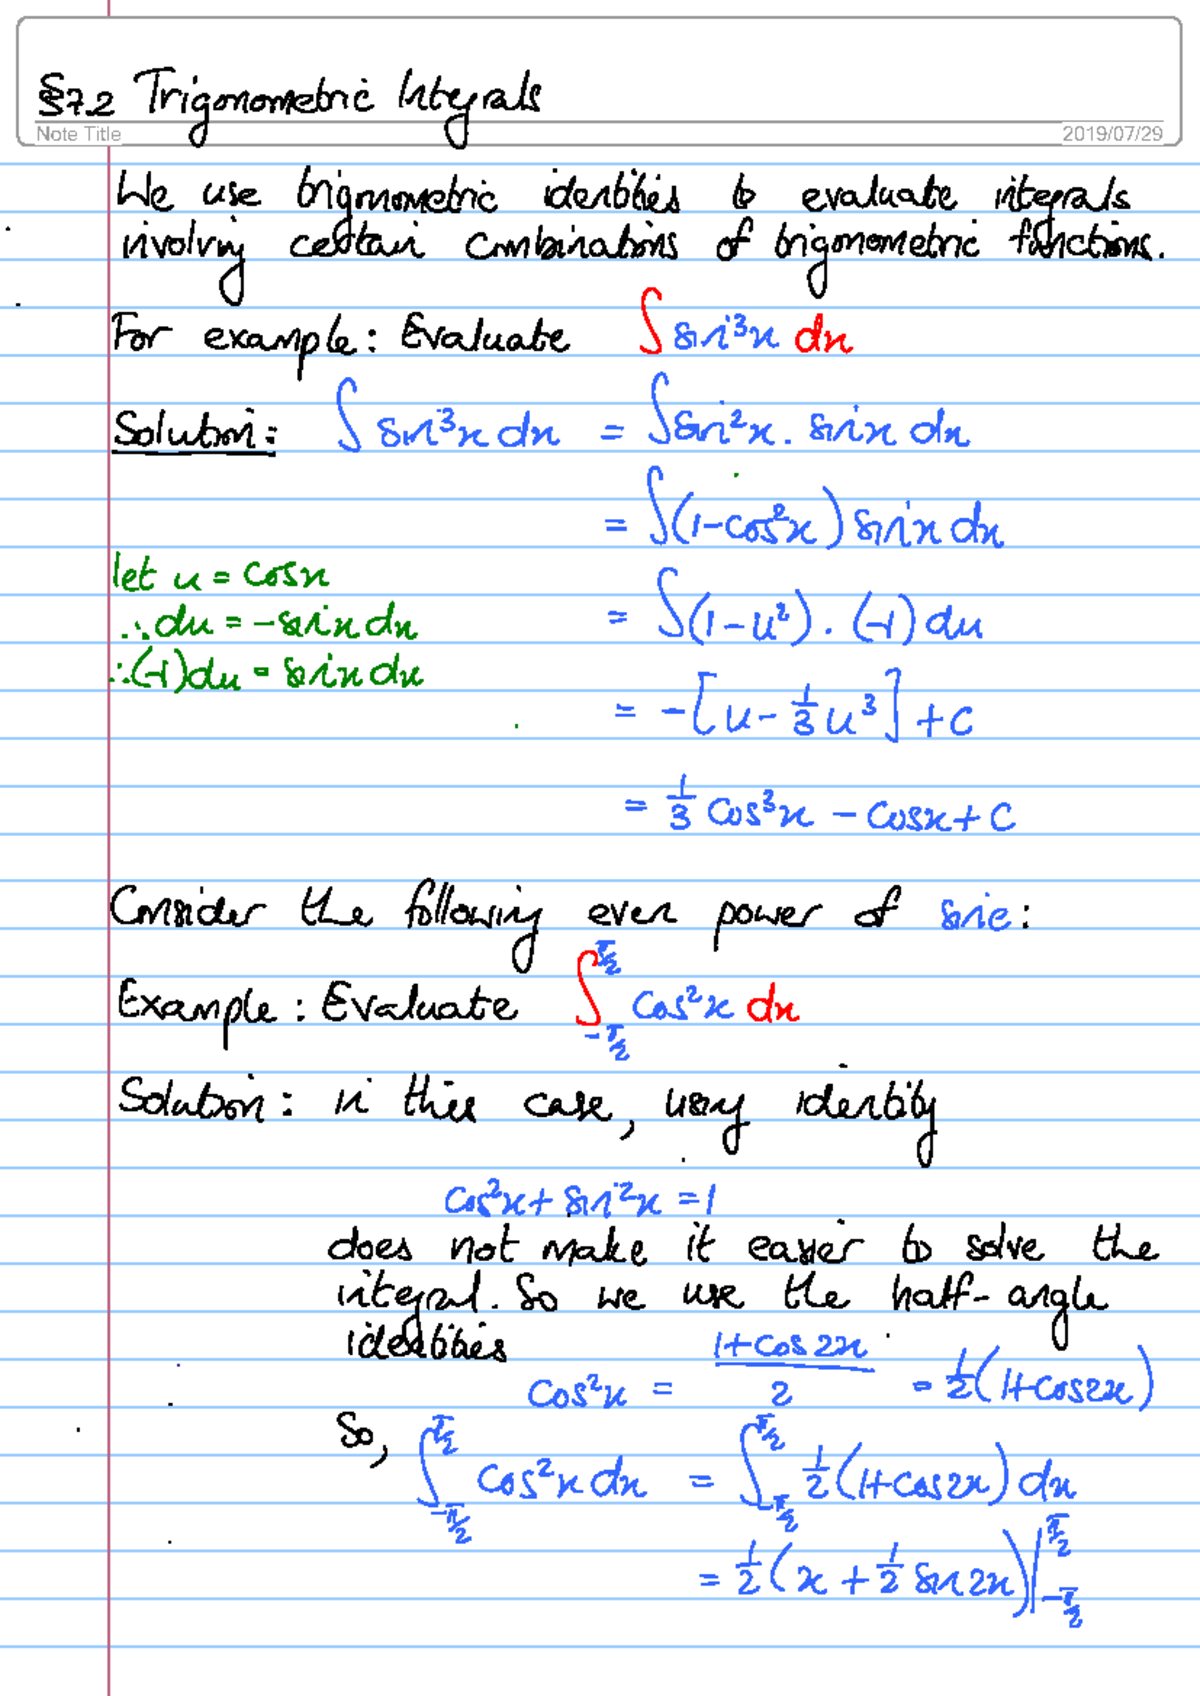 §7.2 Trigonometric Integrals
Note Title 2019/07/29
We use trigonometric identities to evaluate integrals
involving certain combinations of trigonometric functions.
For example: Evaluate ∫ sin³x dx
Solution: ∫ sin³x dx = ∫ sin²x. sinx dx
= ∫(1-cos²x) sinx dx
let u = cosx
∴ du = -sinx dx = ∫(1-u²). (-1) du
∴ (-1)du = sinx dx
= -[u - 1/3 u³] + c
= 1/3 cos³x - cosx + c
Consider the following even power of sine:
Example: Evaluate ∫_{-π/2}^{π/2} cos²x dx
Solution: in this case, using identity
cos²x + sin²x = 1
does not make it easier to solve the
integral. So we use the half-angle
identities
cos²x = (1+cos2x)/2 = 1/2(1+cos2x)
So, ∫_{-π/2}^{π/2} cos²x dx = ∫_{-π/2}^{π/2} 1/2(1+cos2x) dx
= 1/2(x + 1/2 sin2x)|_{-π/2}^{π/2}